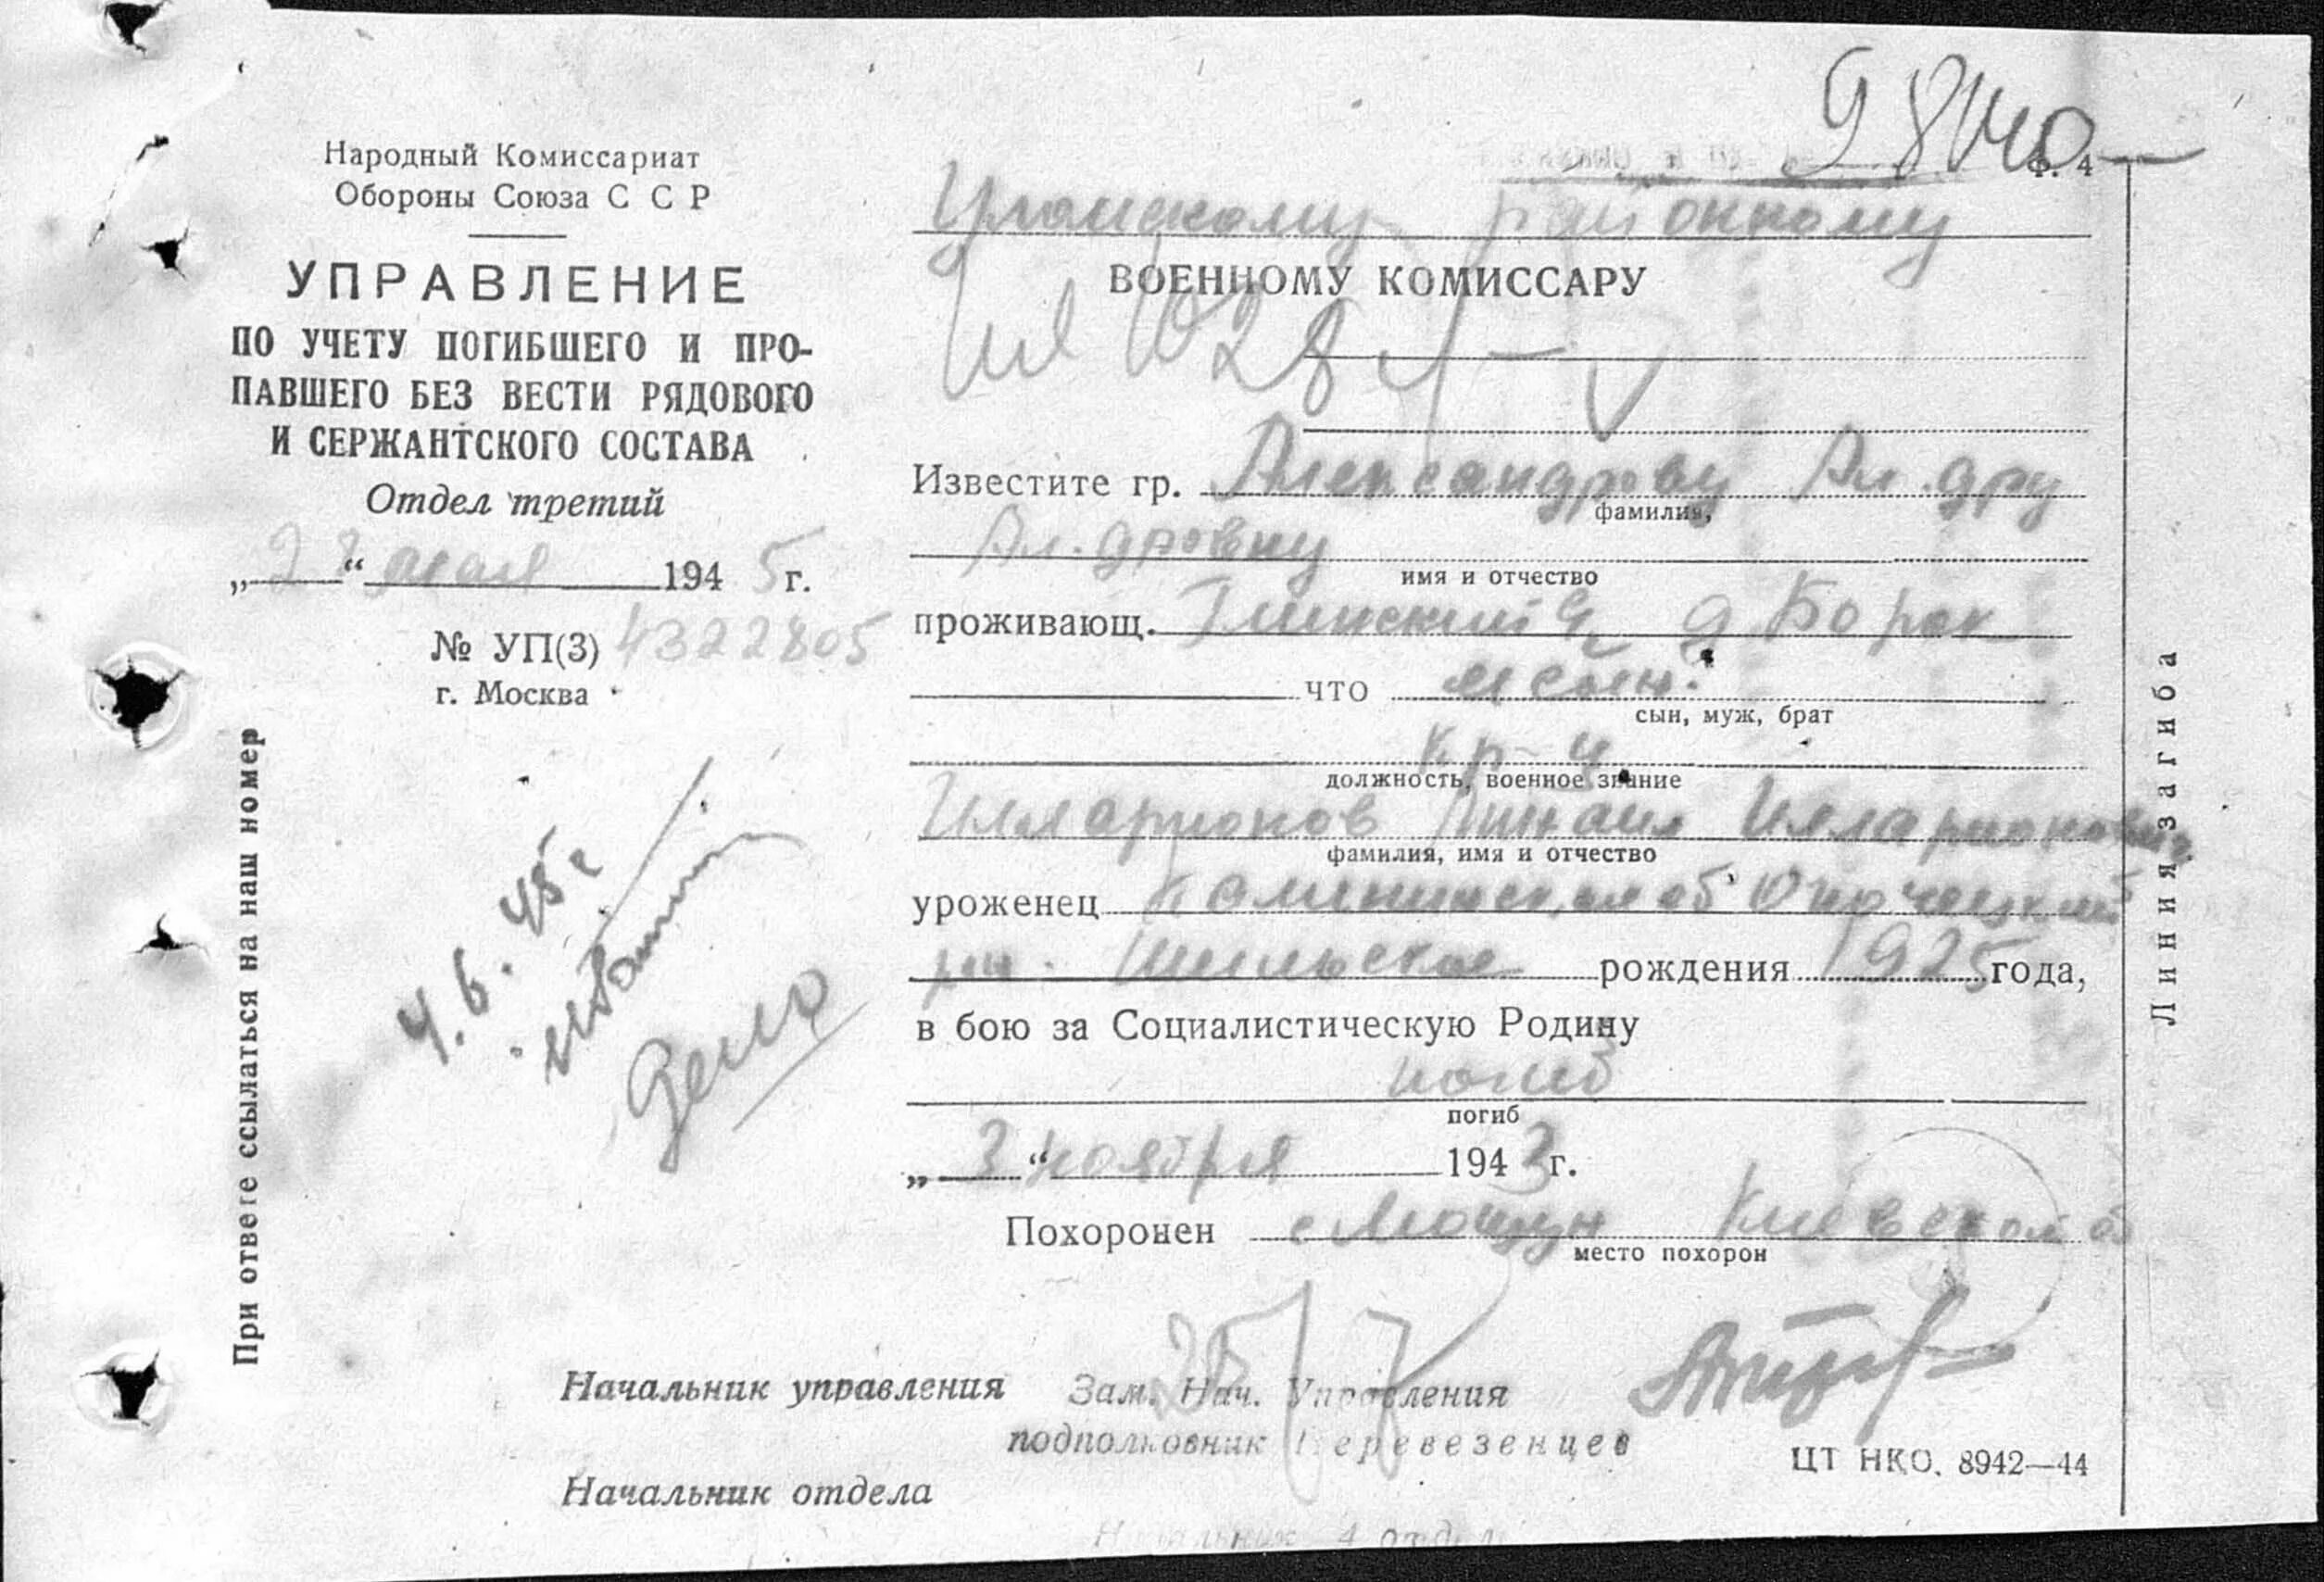 98140
Ф. 4
Народный Комиссариат
Обороны Союза С С Р
УПРАВЛЕНИЕ
ПО УЧЕТУ ПОГИБШЕГО И ПРО-
ПАВШЕГО БЕЗ ВЕСТИ РЯДОВОГО
И СЕРЖАНТСКОГО СОСТАВА
Отдел третий
„ “ мая 1945 г.
№ УП(3) 4322805
г. Москва
При ответе ссылаться на наш номер
4.6.45г
Дело
районному
ВОЕННОМУ КОМИССАРУ
Известите гр. Александрову Ал.дру
фамилия,
Ал.дровну
имя и отчество
проживающ. д Борок
что
сын, муж, брат
кр-ц
должность, военное звание
Илларионов Михаил Илларионович
фамилия, имя и отчество
уроженец Калининск. об
рн. рождения 1925 года,
в бою за Социалистическую Родину
погиб
погиб
„ 3 “ ноября 1943 г.
Похоронен с Мощун Киевской об
место похорон
25/7
Начальник управления Зам. Нач. Управления
подполковник Перевезенцев
Начальник отдела
Начальник 4 отдел
ЦТ НКО. 8942—44
Линия загиба